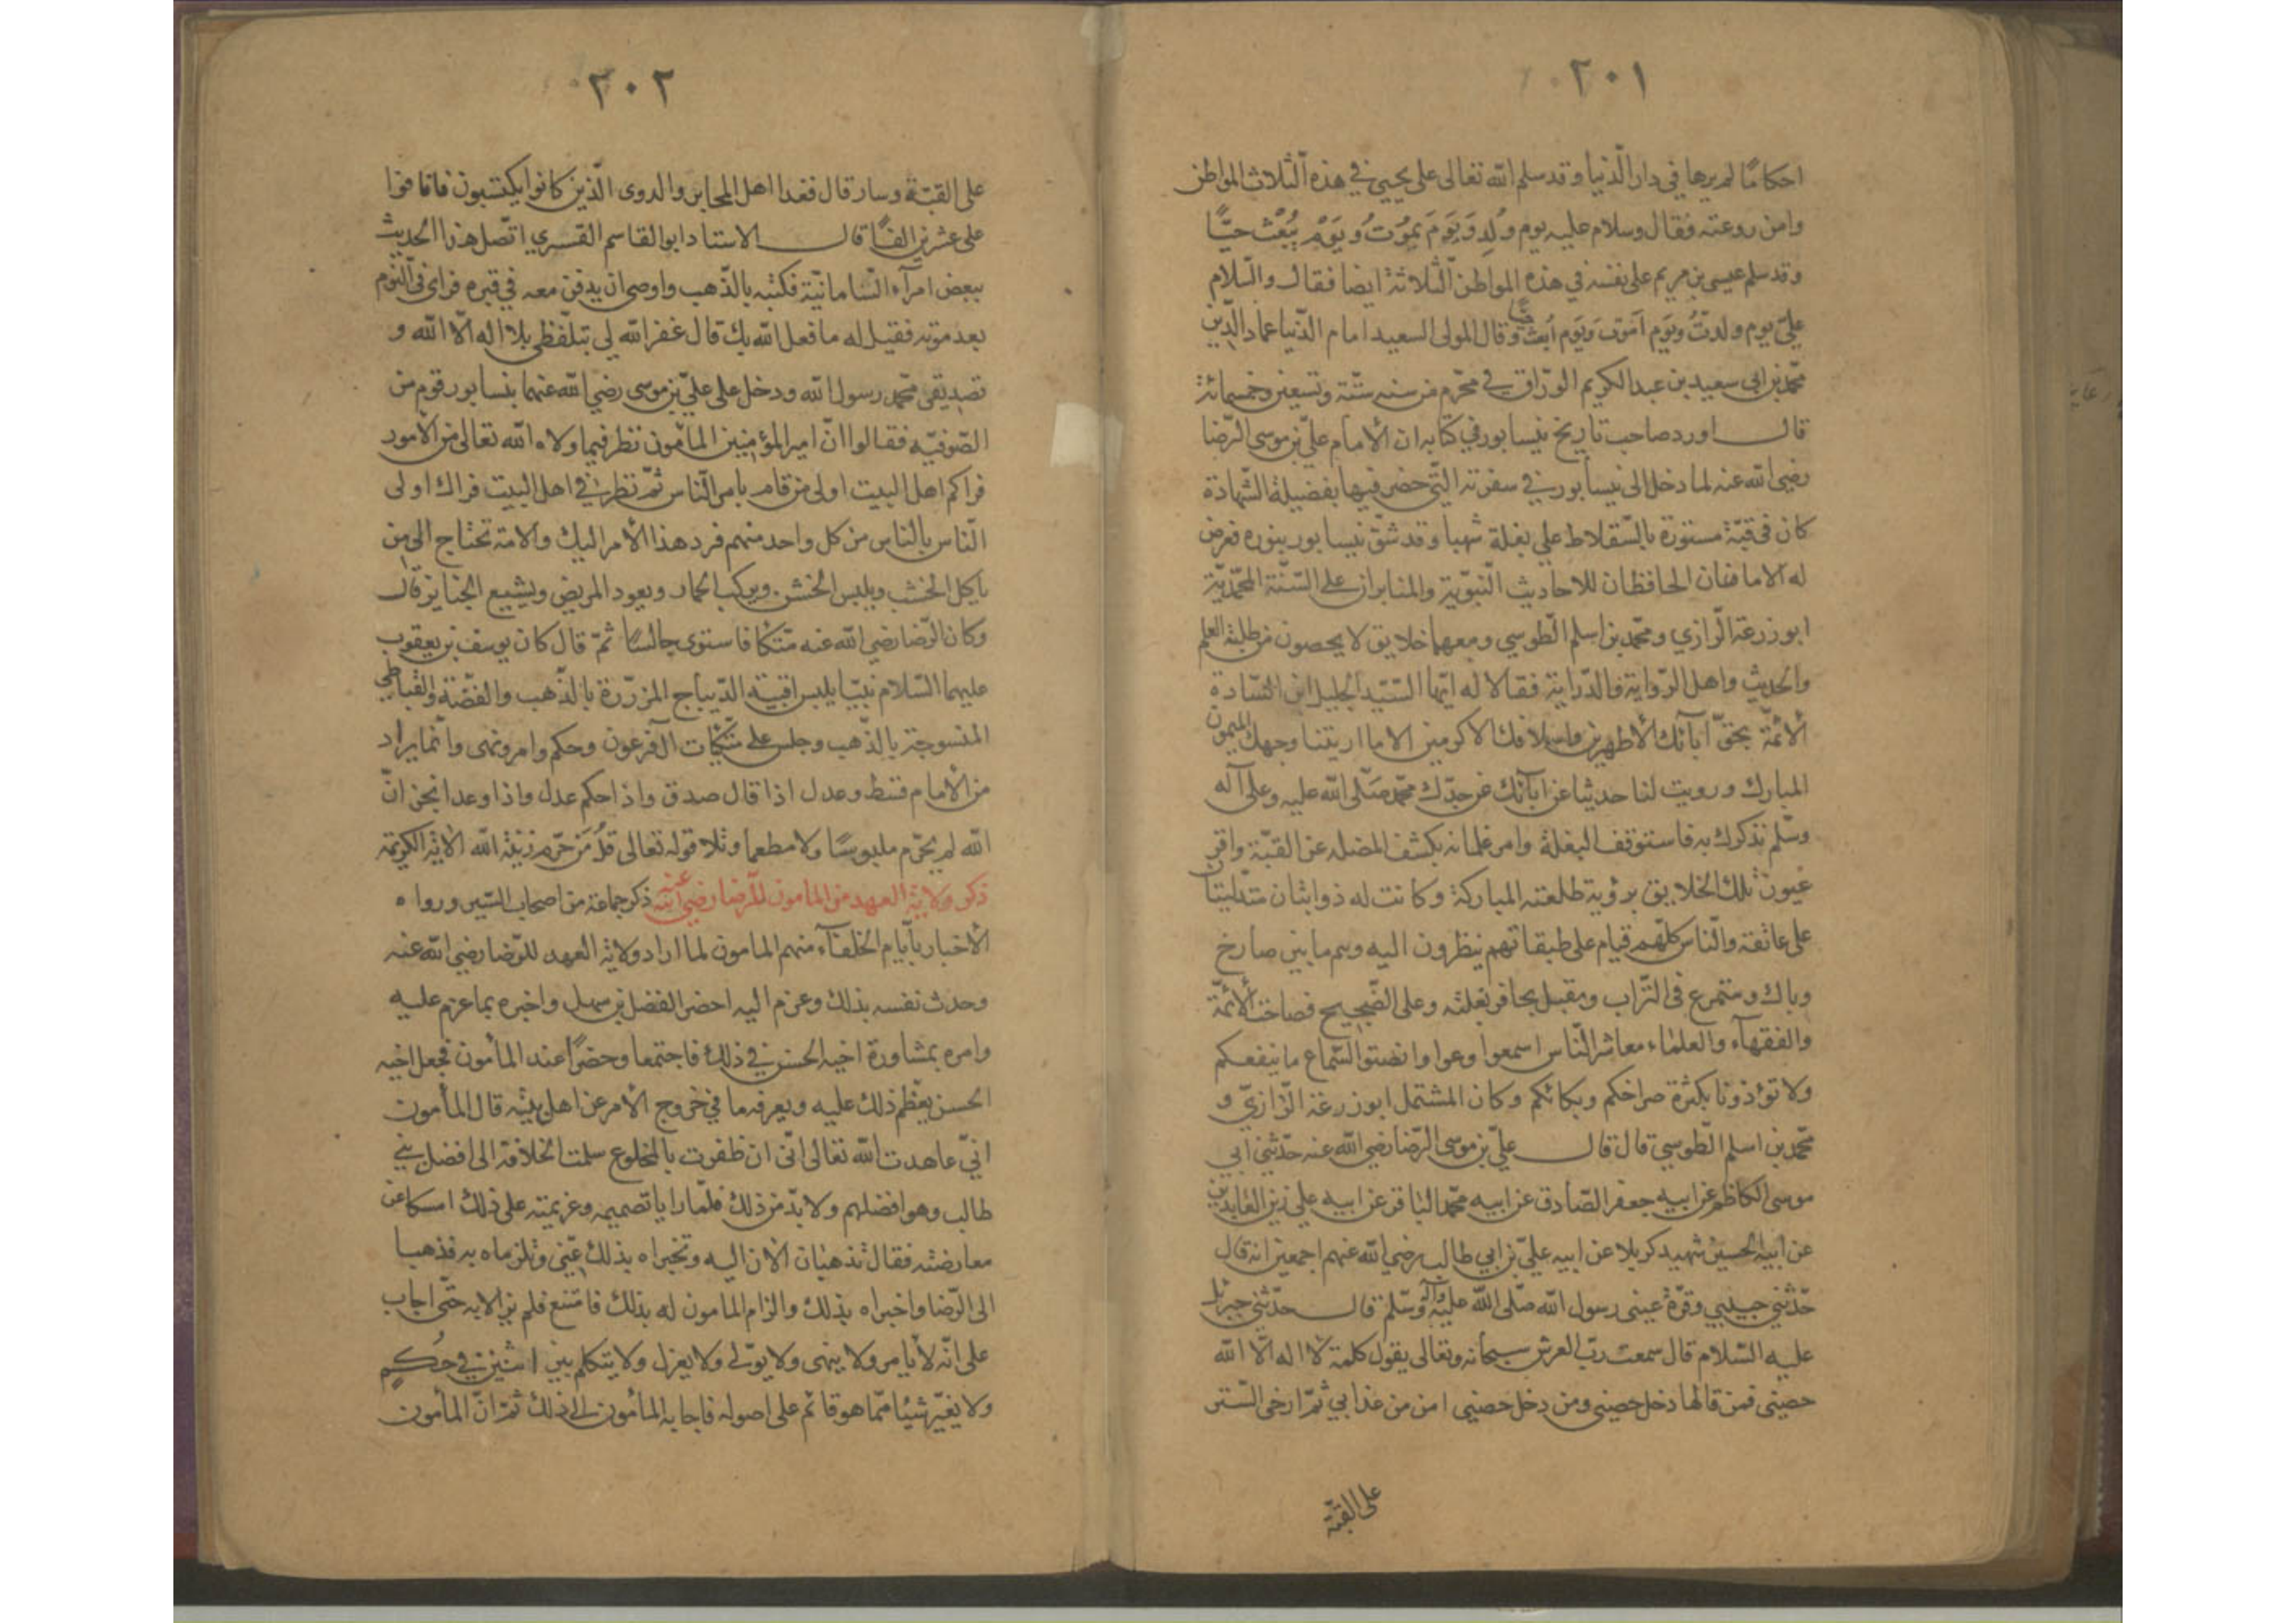 ٢٠١
احكامًا لم يرها في دار الدّنيا وقد سلم الله تعالى على يحيى في هذه الثلاث المواطن
وامن روعته فقال وسلام عليه يوم وُلِد وَيَومَ يمُوتُ وَيَوْمَ يُبْعَثُ حيًّا
وقد سلم عيسى بن مريم على نفسه في هذه المواطن الثلاثة ايضا فقال والسّلام
عليّ يوم ولدتُ ويَوم اَموت وَيَوم اُبعث حيًّا وقال المولى السعيد امام الدّنيا عماد الدّين
محمّد بن ابي سعيد بن عبد الكريم الورّاق في محرّم من سنه ستّة وتسعين وخمسمائة
قال اورد صاحب تاريخ نيسابور في كتابه ان الامام عليّ بن موسى الرّضا
رضي الله عنه لما دخل الى نيسابور في سفرته التّي خص فيها بفضيلة الشّهادة
كان في قبّة مستورة بالسّقلاط على بغلة شهبا وقد شقّ نيسابور بنوره فعرض
له الامامان الحافظان للاحاديث النّبوّية والمثابران على السّنّة المحمّديّة
ابو زرعة الرّازي ومحمّد بن اسلم الطّوسي ومعهما خلايق لا يحصون من طلبة العلم
والحديث واهل الرّواية والدّراية فقالا له ايّها السّيّد الجليل ابن السّادة
الائمّة بحقّ آبائك الاطهرين واسلافك الاكرمين الا ما اريتنا وجهك الميمون
المبارك ورويت لنا حديثا عن آبائك عن جدّك محمّد صلّى الله عليه وعلى آله
وسلّم نذكرك به فاستوقف البغلة وامر غلمانه بكشف المضله عن القبّة واقر
عيون تلك الخلايق برؤية طلعته المباركة وكانت له ذوابتان متدليتان
على عاتقه والنّاس كلّهم قيام على طبقاتهم ينظرون اليه وهم ما بين صارخ
وباك ومتمرغ في التّراب ومقبل بحافر بغلته وعلى الضّجيج فصاحت الائمّة
والفقهآء والعلماء معاشر النّاس اسمعوا وعوا وانصتوا لسماع ما ينفعكم
ولا تؤذونا بكثرة صراخكم وبكائكم وكان المشتمل ابو زرعة الرّازيّ و
محمّد بن اسلم الطّوسي قال قال عليّ بن موسى الرّضا رضي الله عنه حدّثني ابي
موسى الكاظم عن ابيه جعفر الصّادق عن ابيه محمّد الباقر عن ابيه علي زين العابدين
عن ابيه الحسين شهيد كربلا عن ابيه عليّ بن ابي طالب رضي الله عنهم اجمعين انه قال
حدّثني حبيبي وقرّة عيني رسول الله صلّى الله عليه وآله وسلّم قال حدّثني جبرئيل
عليه السّلام قال سمعت ربّ العرش سبحانه وتعالى يقول كلمة لا اله الّا الله
حصني فمن قالها دخل حصني ومن دخل حصني امن من عذابي ثمّ ارخى السّتر
على القبّة
٢٠٢
على القبّة وسار قال فغدا اهل المحابر والدوى الّذين كانوا يكتبون فانافوا
على عشرين الفًا قال الاستاد ابو القاسم القسري اتّصل هذا الحديث
ببعض امرآء السّامانيّة فكتبه بالذّهب واوصى ان يدفن معه في قبره فراى في النّوم
بعد موته فقيل له ما فعل الله بك قال غفر الله لي بتلّفظي بلا اله الّا الله و
تصديقي محمّد رسول الله ودخل على عليّ بن موسى رضي الله عنهما بنسابور قوم من
الصّوفيّه فقالوا انّ امير المؤمنين المأمون نظر فيما ولاه الله تعالى من الامور
فراكم اهل البيت اولى من قام بامر النّاس ثمّ نظر في اهل البيت فراك اولى
النّاس بالناس من كل واحد منهم فرد هذا الأمر اليك والامة تحتاج الى من
ياكل الخشب ويلبس الخشن ويركب الحمار ويعود المريض ويشيع الجنايز قال
وكان الرّضا رضي الله عنه متّكا فاستوى جالسًا ثمّ قال كان يوسف بن يعقوب
عليهما السّلام نبيّا يلبس اقبية الدّيباج المزرّرة بالذّهب والفضّة والقباطي
المنسوجة بالذّهب وجلس على متّكات آل فرعون وحكم وامر ونهى وانّما يراد
من الأمام قسط وعدل اذا قال صدق واذا حكم عدل واذا وعد انجز انّ
الله لم يحرّم ملبوسًا ولا مطعما وتلا قوله تعالى قلْ مَن حرّم زينة الله الاية الكريمة
ذكر ولاية العهد من المامون للرّضا رضي الله عنه ذكر جماعة من اصحاب السّير ورواه
الأخبار بأيام الخلفآء منهم المامون لما اراد ولاية العهد للرّضا رضي الله عنه
وحدث نفسه بذلك وعزم اليه احضر الفضل بن سهل واخبره بما عزم عليه
وامره بمشاورة اخيه الحسن في ذلك فاجتمعا وحضرًا عند المأمون فجعل اخيه
الحسن يعظّم ذلك عليه ويعرفه ما في خروج الامر عن اهل بيته قال المأمون
انيّ عاهدت الله تعالى انّى ان ظفرت بالمخلوع سلمت الخلافة الى افضل بني
طالب وهو افضلهم ولا بدّ من ذلك فلمّا رايا تصميمه وعزيمته على ذلك امسكا عن
معارضته فقال تذهبان الآن اليه وتخبراه بذلك عنّي وتلزماه به فذهبا
الى الرّضا واخبراه بذلك والزام المامون له بذلك فامتنع فلم يزالا به حتّى اجاب
على انّه لا يامر ولا ينهى ولا يولّي ولا يعزل ولا يتكلم بين اثنين في حُكمٍ
ولا يغيّر شيئا ممّا هو قائم على اصوله فاجابه المأمون الى ذلك ثمّ انّ المأمون